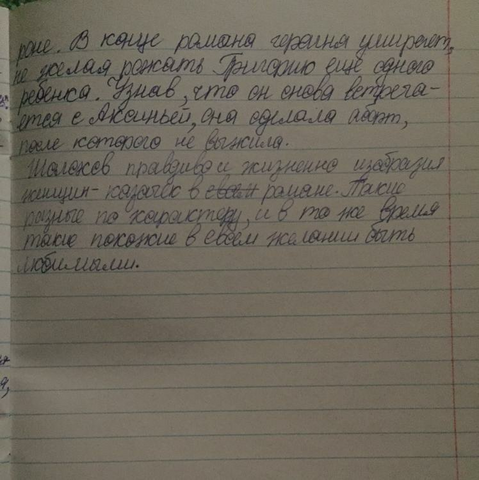 роне. В конце романа героиня умирает,
не желая рожать Григорию еще одного
ребенка. Узнав, что он снова встреча-
ется с Аксиньей, она сделала аборт,
после которого не выжила.
Шолохов правдиво и жизненно изобразил
женщин-казачек в своём романе. Такие
разные по характеру, и в то же время
такие похожие в своем желании быть
любимыми.